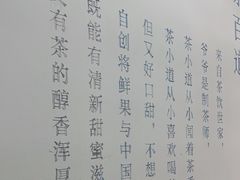 来自茶饮世家，
爷爷是制茶师，
茶小道从小闻着茶
茶小道从小喜欢喝
但又好口甜，不想
自创将鲜果与中国
既能有清新甜蜜滋
又有茶的醇香浑厚